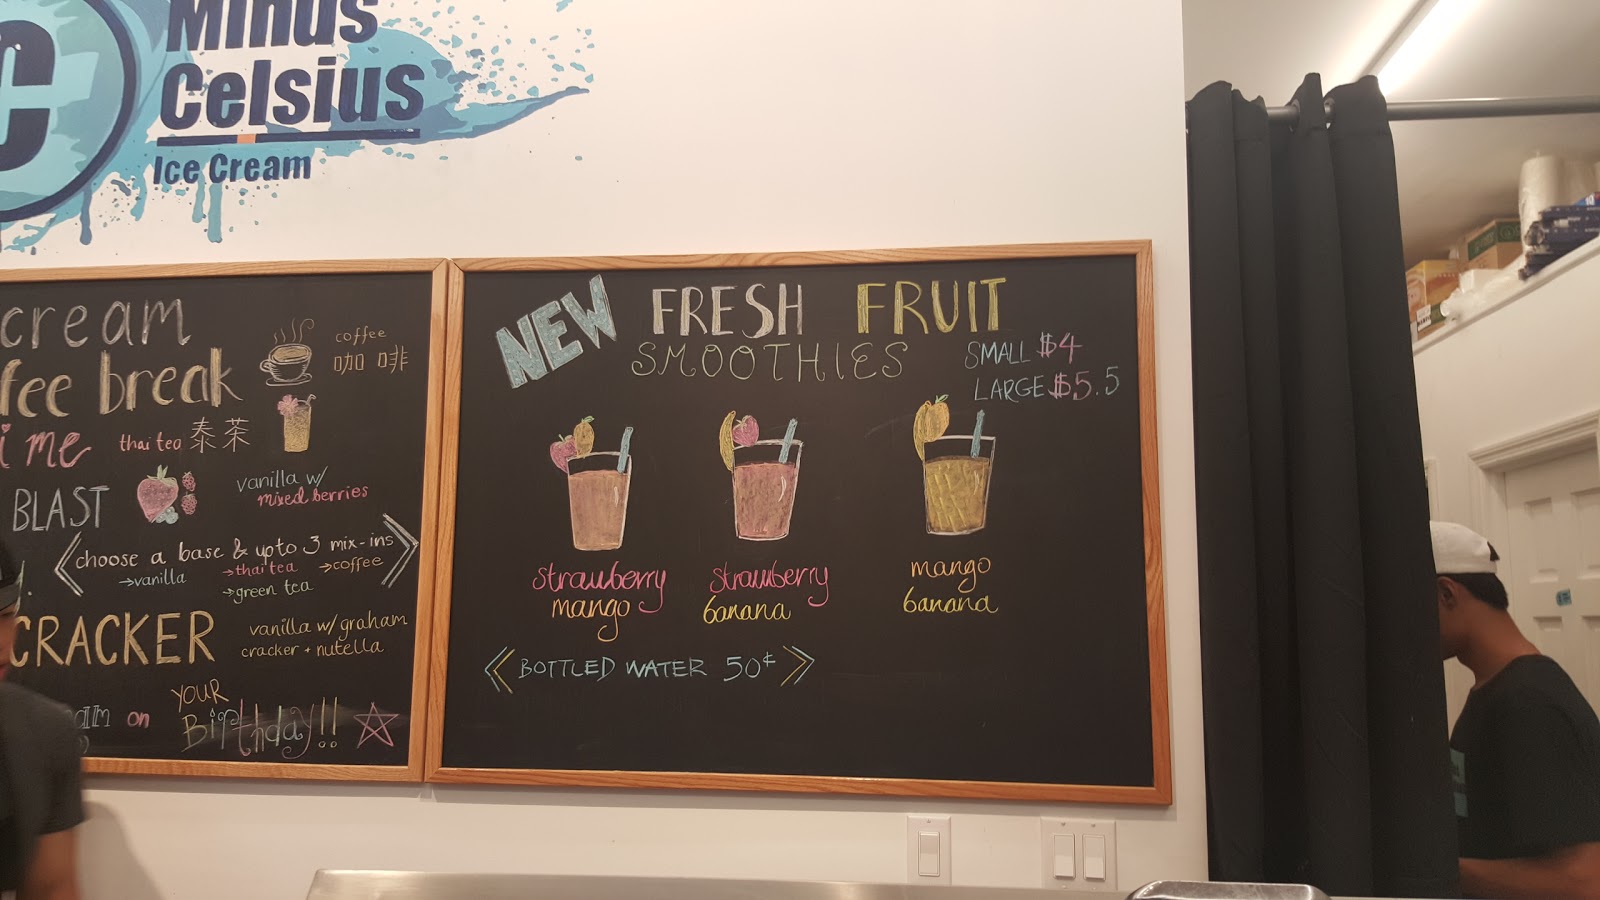 C
Minus
Celsius
Ice Cream
cream
coffee
咖 啡
fee break
i me
thai tea 泰 茶
BLAST
vanilla w/
mixed berries
choose a base & up to 3 mix-ins
→vanilla →thai tea →coffee
→green tea
CRACKER
vanilla w/ graham
cracker + nutella
on YOUR
Birthday!!
NEW FRESH FRUIT
SMOOTHIES
SMALL $4
LARGE $5.5
strawberry
mango
strawberry
banana
mango
banana
BOTTLED WATER 50¢